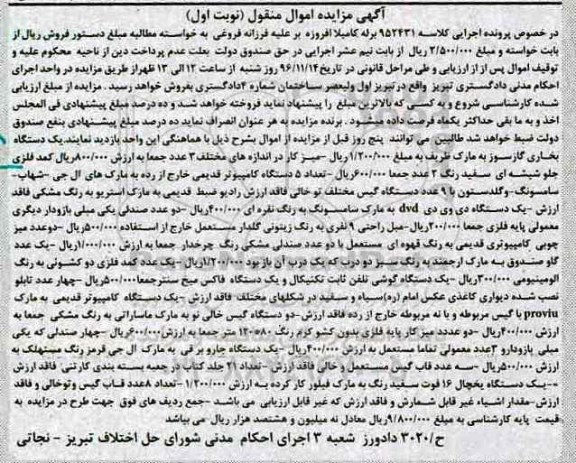 آگهی مزایده اموال منقول (نوبت اول)
در خصوص پرونده اجرایی کلاسه ۹۵۲۴۳۱ برله کامیلا افروزه بر علیه فرزانه فروغی به خواسته مطالبه مبلغ دستور فروش ریال از
بابت خواسته و مبلغ ۲/۵۰۰/۰۰۰ ریال از بابت نیم عشر اجرایی در حق صندوق دولت بعلت عدم پرداخت دین از ناحیه محکوم علیه و
توقیف اموال پس از از ارزیابی و طی مراحل قانونی در تاریخ ۹۶/۱۱/۱۴ روز شنبه از ساعت ۱۲ الی ۱۳ ظهر از طریق مزایده در واحد اجرای
احکام مدنی دادگستری تبریز واقع در تبریز اول ولیعصر ساختمان شماره ۴ دادگستری بفروش خواهد رسید . مزایده از مبلغ ارزیابی
شده کارشناسی شروع و به کسی که بالاترین مبلغ را پیشنهاد نماید فروخته خواهد شد و ده درصد مبلغ پیشنهادی فی المجلس
اخذ و ما بقی حداکثر یکماه فرصت داده میشود . برنده مزایده به هر عنوان انصراف نماید ده درصد مبلغ پیشنهادی بنفع صندوق
دولت ضبط خواهد شد طالبین می توانند پنج روز قبل از مزایده از اموال بشرح ذیل با هماهنگی این واحد بازدید نمایند.یک دستگاه
بخاری گازسوز به مارک ظریف به مبلغ ۱/۲۰۰/۰۰۰ ریال -میز کار در اندازه های مختلف ۳ عدد جمعا به ارزش ۸۰۰/۰۰۰ ریال کمد فلزی
جلو شیشه ای سفید رنگ ۲ عدد جمعا ۶۰۰/۰۰۰ریال -تعداد ۵ دستگاه کامپیوتر قدیمی خارج از رده به مارک های ال جی -شهاب-
سامسونگ-وگلدستون با ۹ عدد دستگاه کیس مختلف تو خالی فاقد ارزش رادیو ضبط قدیمی به مارک استریو به رنگ مشکی فاقد
ارزش -یک دستگاه دی وی دی dvd به مارک سامسونگ به رنگ نقره ای ۴۰۰/۰۰۰ریال -دو عدد صندلی یکی مبلی بازودار دیگری
معمولی پایه فلزی جمعا ۲۰۰/۰۰۰ریال-مبل راحتی ۹ نفری به رنگ زیتونی گلدار مستعمل خارج از استفاده ۵۰۰/۰۰۰ریال -دوعدد میز
چوبی کامپیوتری قدیمی به رنگ قهوه ای مستعمل با دو عدد صندلی مشکی رنگ چرخدار جمعا به ارزش ۱/۰۰۰/۰۰۰ریال -یک عدد
گاو صندوق به مارک ارجمند به رنگ سبز دو درب که یک درب آن باز بود ۱/۲۰۰/۰۰۰ریال-یک عدد کمد فلزی دو کشوئی به رنگ
الومینیومی ۳۰۰/۰۰۰ریال -یک دستگاه گوشی تلفن ثابت تکنیکال و یک دستگاه فاکس میخ سنتر جمعا۵۰۰/۰۰۰ریال -چهار عدد تابلو
نصب شده دیواری کاغذی عکس امام (ره)سیاه و سفید در شکلهای مختلف فاقد ارزش -یک دستگاه کامپیوتر قدیمی به مارک
proviu با کیس مربوطه و یا نه مربوطه خارج از رده فاقد ارزش-دو دستگاه کیس خالی نو به مارک ماسارانی به رنگ مشکی جمعا به
ارزش ۴۰۰/۰۰۰ریال -دو عددد میز کار پایه فلزی بدون کشو کرم رنگ ۸۰*۱۲۰ متر جمعا به ارزش۶۰۰/۰۰۰ریال -چهار صندلی که یکی
مبلی بازودارو ۳عدد معمولی تماما مستعمل به ارزش ۴۰۰/۰۰۰ریال -یک دستگاه جارو بر قی به مارک ال جی قرمز رنگ مستهلک به
ارزش ۵۰۰/۰۰۰ریال -سه عدد قاب گیس مستعمل و خالی فاقد ارزش -تعداد ۲۱ جلد کتاب در جعبه بسته بندی کارتنی فاقد ارزش
--یک دستگاه یخچال ۱۶ فوت سفید رنگ به مارک فیلور کار کرده به ارزش ۱/۲۰۰/۰۰۰ -تعداد ۸عدد قاب گیس وتوخالی و فاقد
ارزش-مقدار اشیاء غیر قابل شمارش و فاقد ارزش که غیر قابل ارزیابی می باشد -جمع ردیف های فوق جهت طرح در مزایده به
قیمت پایه کارشناسی به مبلغ ۹/۸۰۰/۰۰۰ریال معادل نه میلیون و هشتصد هزار ریال می باشد
ح/۳۰۲۰ دادورز شعبه ۳ اجرای احکام مدنی شورای حل اختلاف تبریز - نجاتی